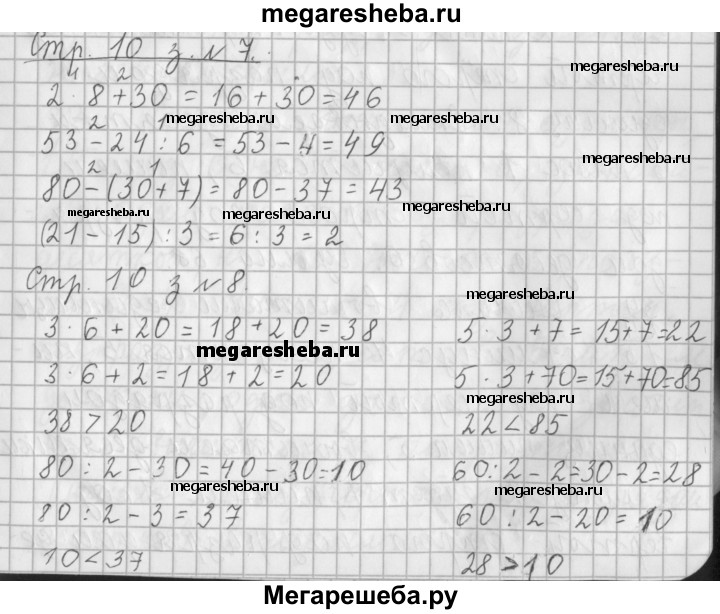 megaresheba.ru
Стр. 10 з. № 7.
megaresheba.ru
1 2
2 · 8 + 30 = 16 + 30 = 46
megaresheba.ru megaresheba.ru
2 1
53 - 24 : 6 = 53 - 4 = 49
megaresheba.ru
2 1
80 - (30 + 7) = 80 - 37 = 43
megaresheba.ru megaresheba.ru megaresheba.ru
(21 - 15) : 3 = 6 : 3 = 2
Стр. 10 з № 8.
megaresheba.ru
3 · 6 + 20 = 18 + 20 = 38
5 · 3 + 7 = 15 + 7 = 22
megaresheba.ru
3 · 6 + 2 = 18 + 2 = 20
5 · 3 + 70 = 15 + 70 = 85
megaresheba.ru
38 > 20
22 < 85
80 : 2 - 30 = 40 - 30 = 10
60 : 2 - 2 = 30 - 2 = 28
megaresheba.ru megaresheba.ru
80 : 2 - 3 = 37
60 : 2 - 20 = 10
10 < 37
28 > 10
Мегарешеба.ру